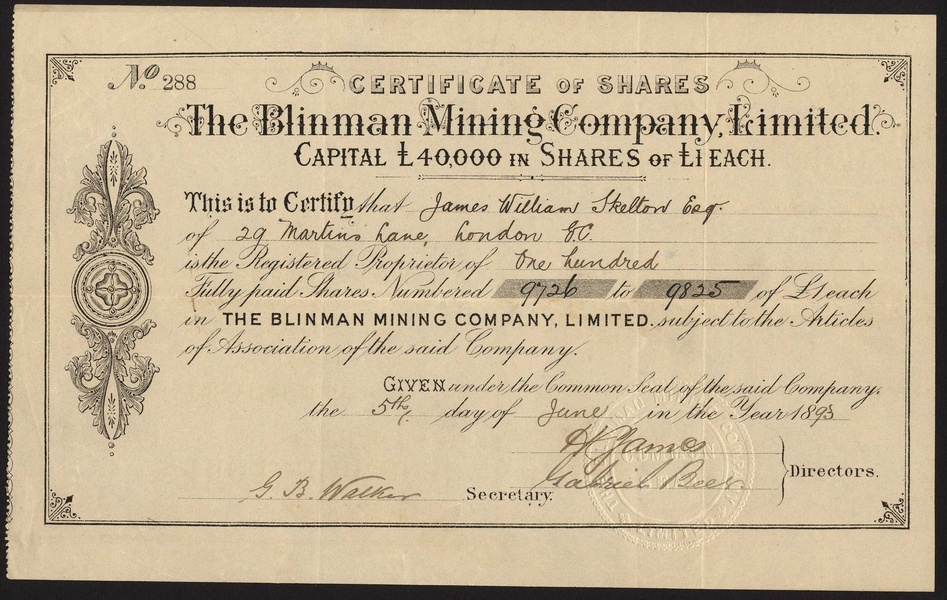 No. 288
CERTIFICATE OF SHARES
The Blinman Mining Company, Limited.
CAPITAL £40,000 IN SHARES OF £1 EACH.
This is to Certify that James William Skelton Esq.
of 29 Martins Lane, London E.C.
is the Registered Proprietor of One hundred
Fully paid Shares Numbered 9726 to 9825 of £1 each
in THE BLINMAN MINING COMPANY, LIMITED. subject to the Articles
of Association of the said Company.
GIVEN under the Common Seal of the said Company,
the 5th day of June in the Year 1893
H James
Gabriel
Directors.
G. B. Walker Secretary.